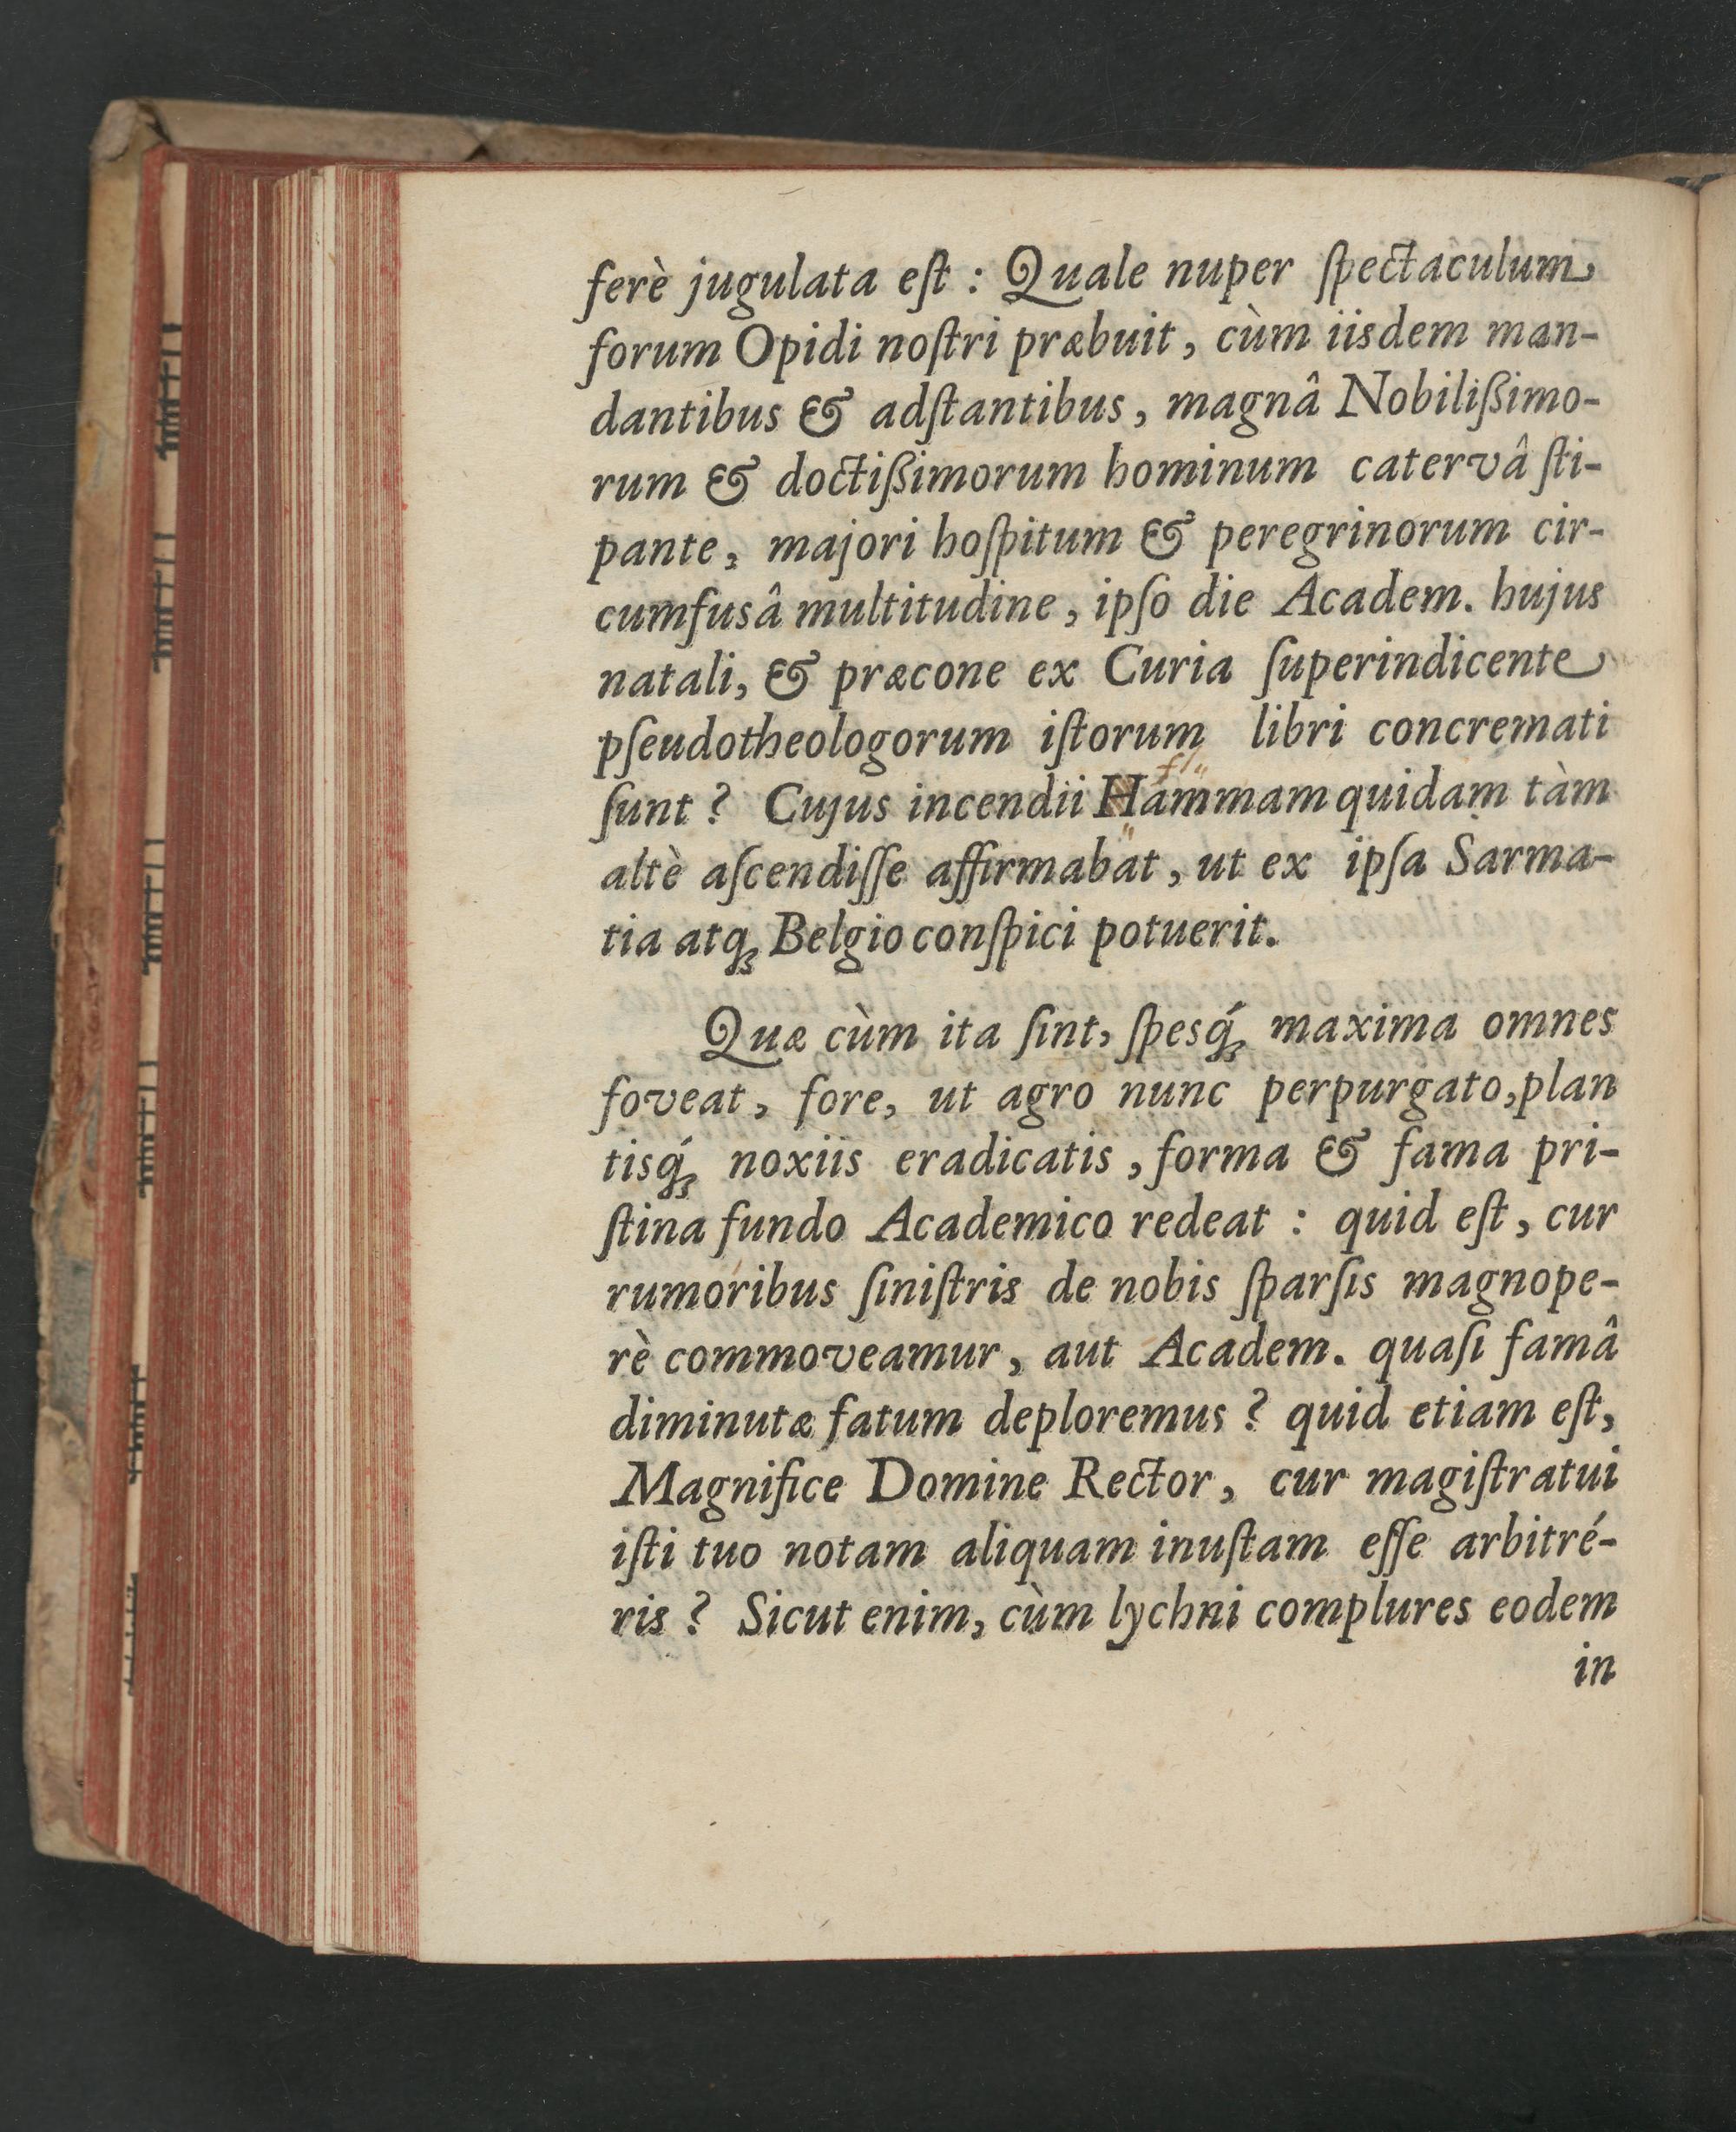 ferè jugulata eſt : Quale nuper ſpectaculum
forum Opidi noſtri præbuit, cùm iisdem man-
dantibus & adſtantibus, magnâ Nobilißimo-
rum & doctißimorum hominum catervâ ſti-
pante, majori hoſpitum & peregrinorum cir-
cumfusâ multitudine, ipſo die Academ. hujus
natali, & præcone ex Curia ſuperindicente
pſeudotheologorum iſtorum libri concremati
ſunt ? Cujus incendii Hammam quidam tàm
altè aſcendiſſe affirmabat, ut ex ipſa Sarma-
tia atq; Belgio conſpici potuerit.
Quæ cùm ita ſint, ſpesq́; maxima omnes
foveat, fore, ut agro nunc perpurgato, plan
tisq́; noxiis eradicatis, forma & fama pri-
ſtina fundo Academico redeat : quid eſt, cur
rumoribus ſiniſtris de nobis ſparſis magnope-
rè commoveamur, aut Academ. quaſi famâ
diminutæ fatum deploremus ? quid etiam eſt,
Magnifice Domine Rector, cur magiſtratui
iſti tuo notam aliquam inuſtam eſſe arbitré-
ris ? Sicut enim, cùm lychni complures eodem
in